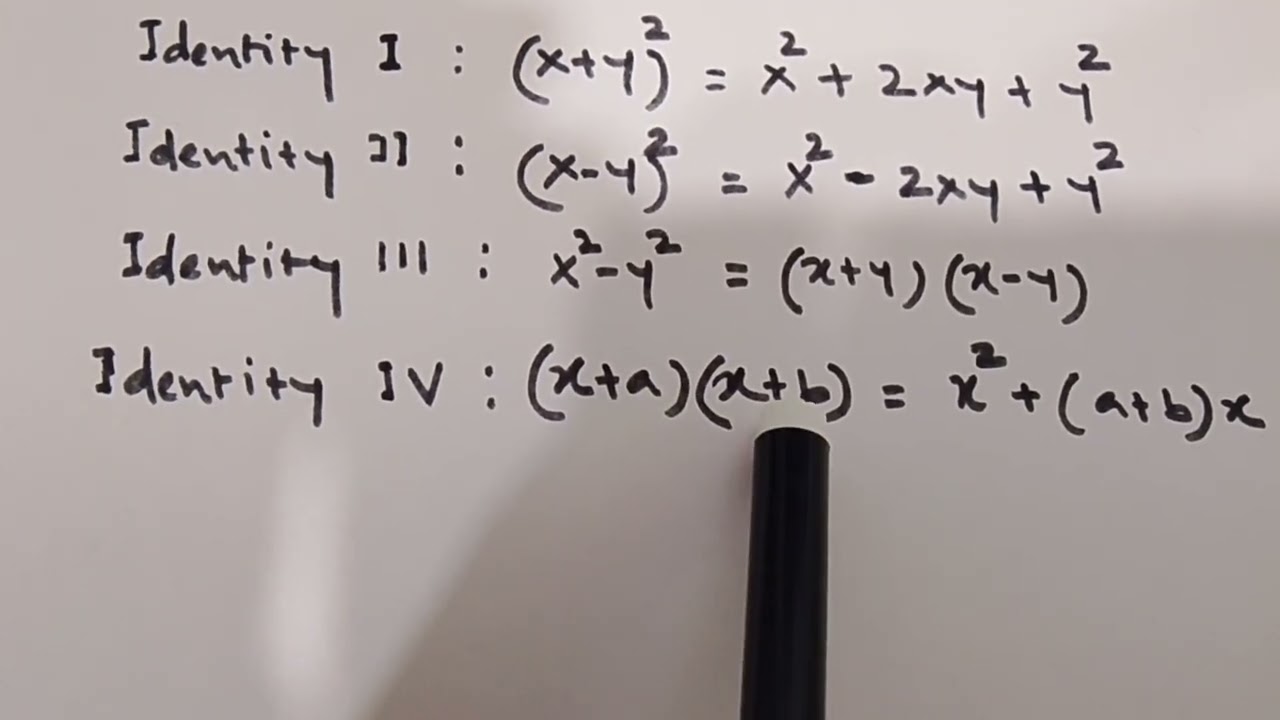 Identity I : (x+y)² = x² + 2xy + y²
Identity II : (x-y)² = x² - 2xy + y²
Identity III : x²-y² = (x+y)(x-y)
Identity IV : (x+a)(x+b) = x² + (a+b)x